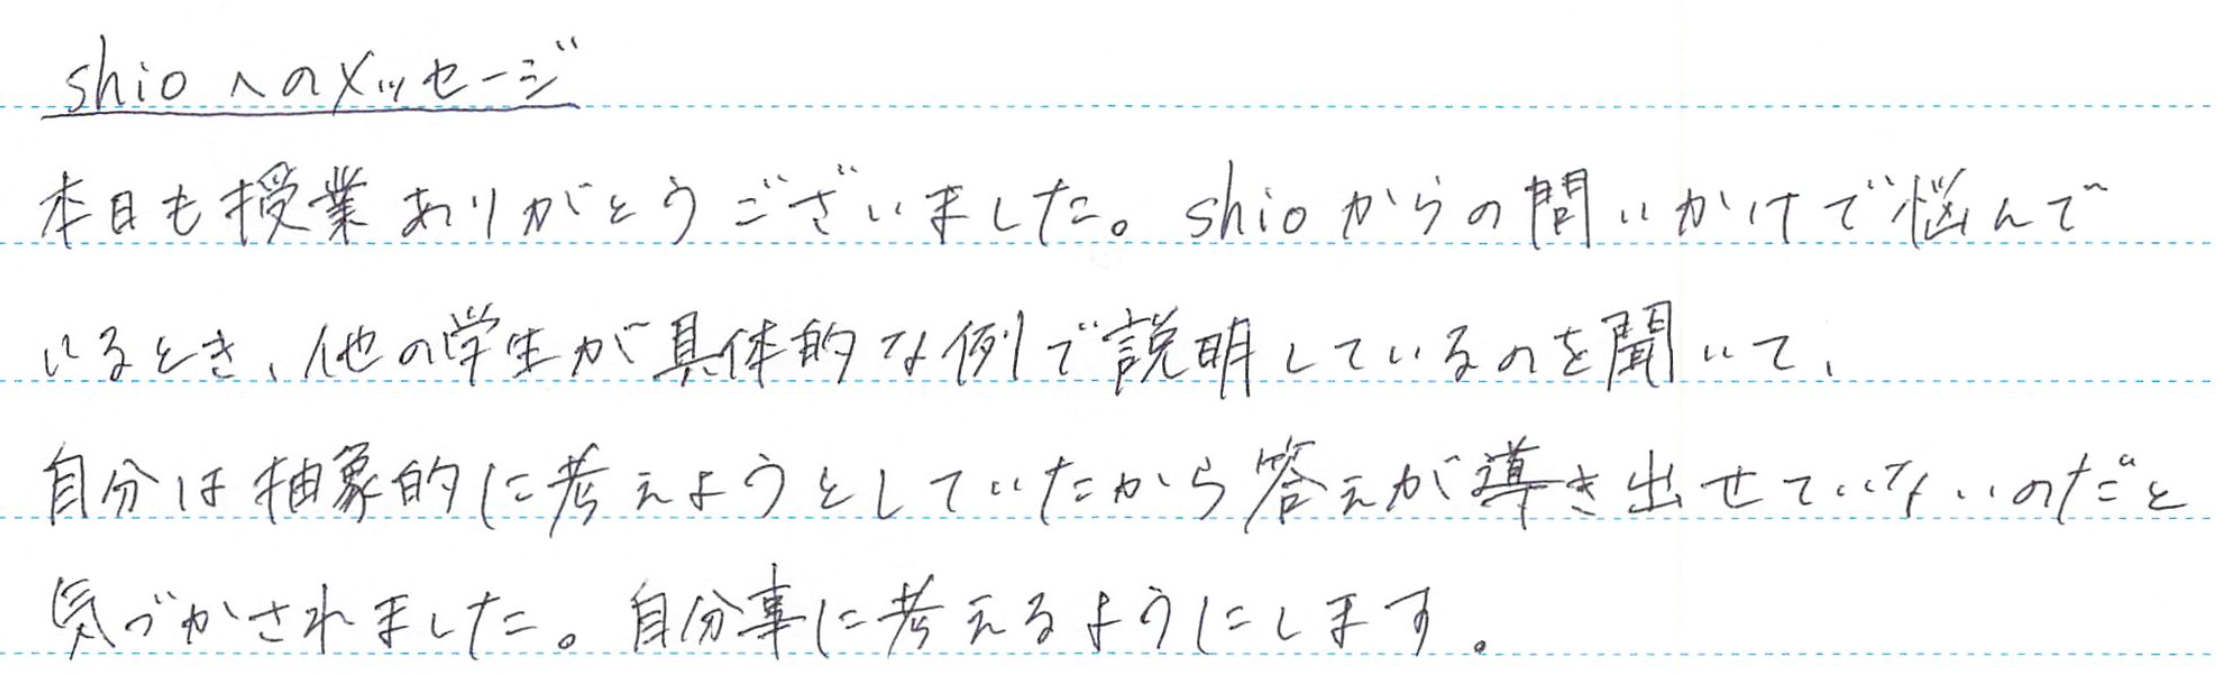 shioへのメッセージ
本日も授業ありがとうございました。shioからの問いかけで悩んで
いるとき、他の学生が具体的な例で説明しているのを聞いて、
自分は抽象的に考えようとしていたから答えが導き出せていないのだと
気づかされました。自分事に考えるようにします。